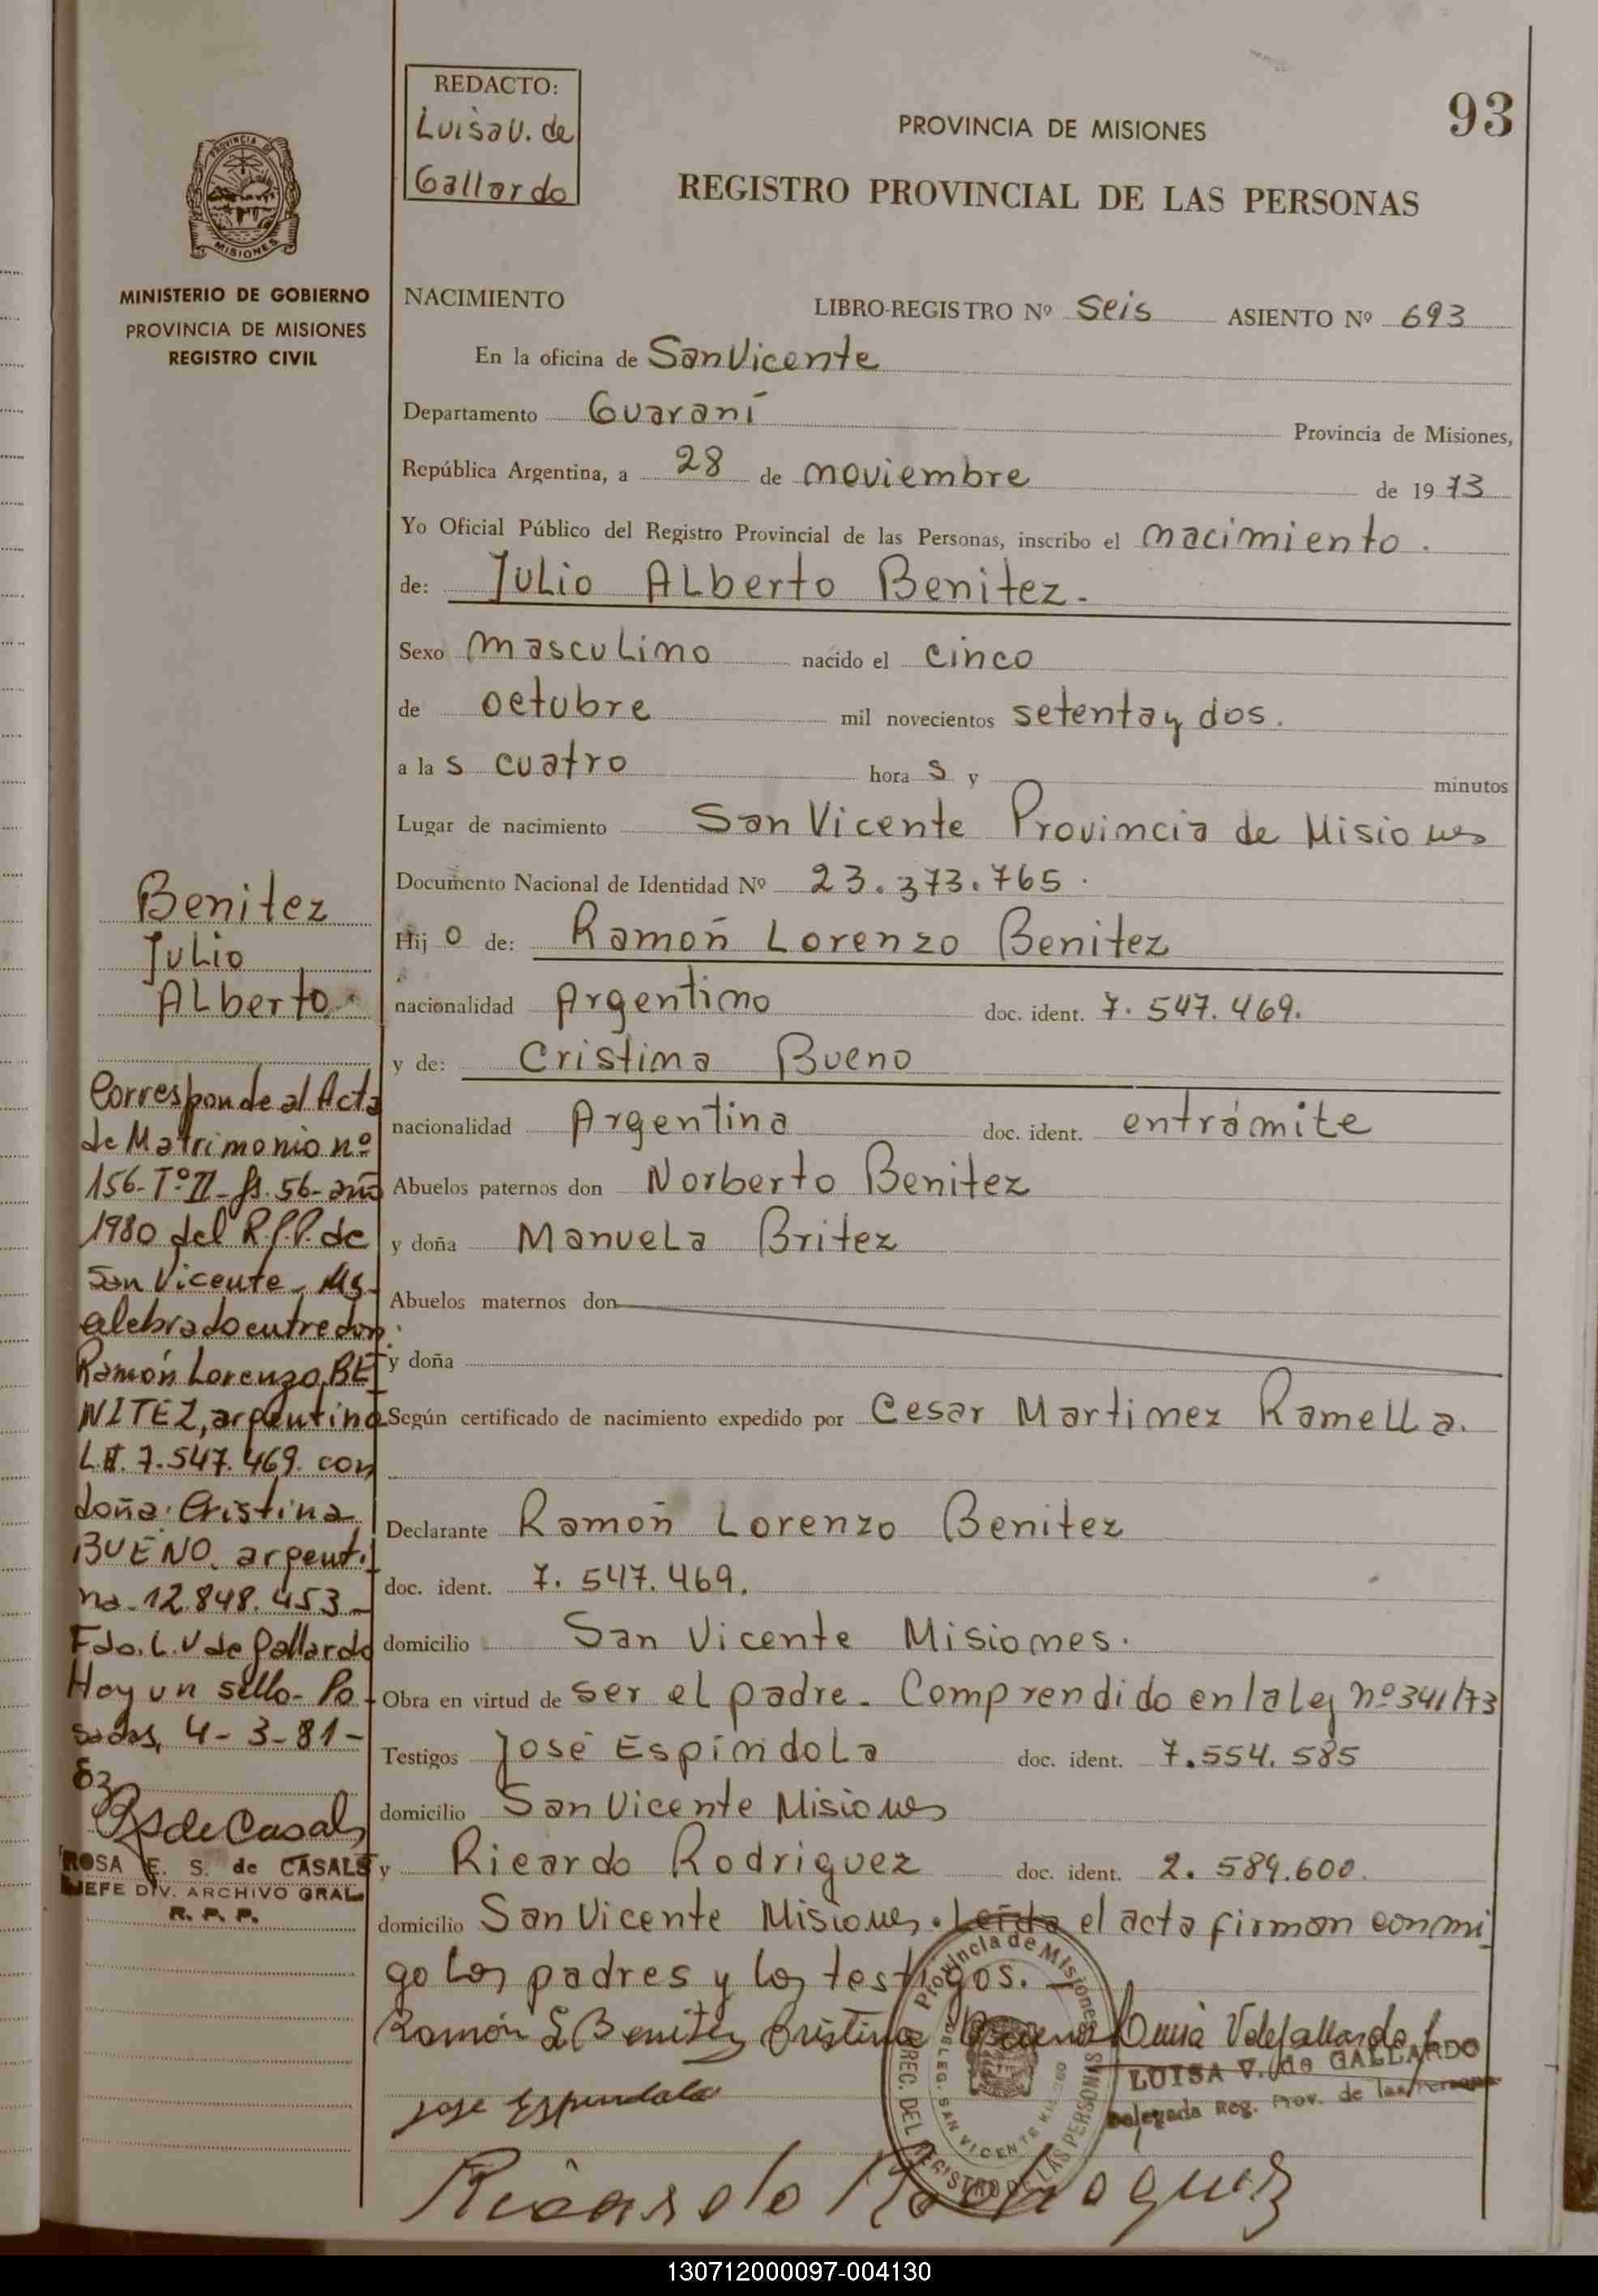 REDACTO:
Luisa V. de
Gallardo
PROVINCIA DE MISIONES
93
REGISTRO PROVINCIAL DE LAS PERSONAS
PROVINCIA DE
MISIONES
MINISTERIO DE GOBIERNO
PROVINCIA DE MISIONES
REGISTRO CIVIL
NACIMIENTO
LIBRO-REGISTRO Nº Seis ASIENTO Nº 693
En la oficina de San Vicente
Departamento Guaraní Provincia de Misiones,
República Argentina, a 28 de noviembre de 1973
Yo Oficial Público del Registro Provincial de las Personas, inscribo el nacimiento.
de: Julio Alberto Benitez.
Sexo masculino nacido el cinco
de octubre mil novecientos setenta y dos.
a las cuatro horas y minutos
Lugar de nacimiento San Vicente Provincia de Misiones
Documento Nacional de Identidad Nº 23.373.765.
Hijo de: Ramón Lorenzo Benitez
nacionalidad Argentino doc. ident. 7.547.469.
y de: Cristina Bueno
nacionalidad Argentina doc. ident. entrámite
Abuelos paternos don Norberto Benitez
y doña Manuela Britez
Abuelos maternos don
y doña
Según certificado de nacimiento expedido por Cesar Martinez Ramella.
Declarante Ramón Lorenzo Benitez
doc. ident. 7.547.469.
domicilio San Vicente Misiones.
Obra en virtud de ser el padre. Comprendido en la ley nº 341/73
Testigos José Espíndola doc. ident. 7.554.585
domicilio San Vicente Misiones
y Ricardo Rodriguez doc. ident. 2.589.600.
domicilio San Vicente Misiones. Leída el acta firman conmi
go los padres y los testigos.
Ramón L Benitez Cristina Bueno Luisa V de Gallardo
LUISA V. de GALLARDO
Delegada Reg. Prov. de las Personas
Jose Espindola
Ricardo Rodriguez
Provincia de Misiones
DIREC. DEL REGISTRO DE LAS PERSONAS
DELEG. SAN VICENTE
Benitez
Julio
Alberto
Corresponde al Acta
de Matrimonio nº
156-Tº II-fs. 56-año
1980 del R.P.P. de
San Vicente, Ms.
celebrado entre don:
Ramón Lorenzo BE
NITEZ, argentino
L.E. 7.547.469. con
doña: Cristina
BUENO, argenti
na. 12.848.453-
Fdo. L. V de Gallardo
Hay un sello- Po-
sadas, 4-3-81-
RSdeCasals
ROSA E. S. de CASALS
JEFE DIV. ARCHIVO GRAL
R. P. P.
130712000097-004130